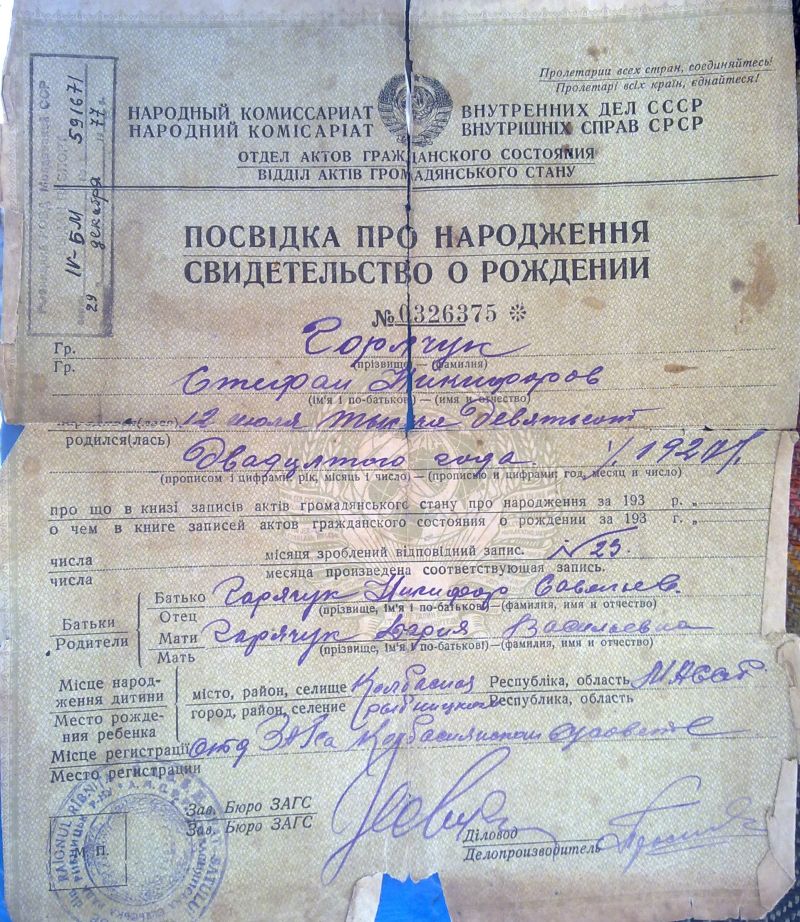 Пролетарии всех стран, соединяйтесь!
Пролетарі всіх країн, єднайтеся!
НАРОДНЫЙ КОМИССАРИАТ ВНУТРЕННИХ ДЕЛ СССР
НАРОДНИЙ КОМІСАРІАТ ВНУТРІШНІХ СПРАВ СРСР
ОТДЕЛ АКТОВ ГРАЖДАНСКОГО СОСТОЯНИЯ
ВІДДІЛ АКТІВ ГРОМАДЯНСЬКОГО СТАНУ
IV-БМ 591671
29 декабря 77
ПОСВІДКА ПРО НАРОДЖЕННЯ
СВИДЕТЕЛЬСТВО О РОЖДЕНИИ
№ 0326375
Гр. Горячук
Гр. (прізвище) — (фамилия)
Стефан Никифоров
(ім'я і по-батькові) — (имя и отчество)
12 июля тысяча девятьсот
родился(лась)
двадцатого года
(прописом і цифрами, рік, місяць і число) — (прописью и цифрами: год, месяц и число)
про що в книзі записів актів громадянського стану про народження за 193 р.
о чем в книге записей актов гражданского состояния о рождении за 193 г.
числа місяця зроблений відповідний запис. № 23.
числа месяца произведена соответствующая запись.
Батьки
Родители
Батько Горячук Никифор Савельев.
Отец (прізвище, ім'я і по-батькові) — (фамилия, имя и отчество)
Мати Горячук Мария Васильевна
Мать (прізвище, ім'я і по-батькові) — (фамилия, имя и отчество)
Місце народження дитини
Место рождения ребенка
місто, район, селище Колбасная Республіка, область МАССР
город, район, селение Рыбницкого Республика, область
Місце регистрації отд ЗАГСа Колбаснянском сельсовете
Место регистрации
Зав. Бюро ЗАГС
Зав. Бюро ЗАГС
Діловод
Делопроизводитель
М. П.